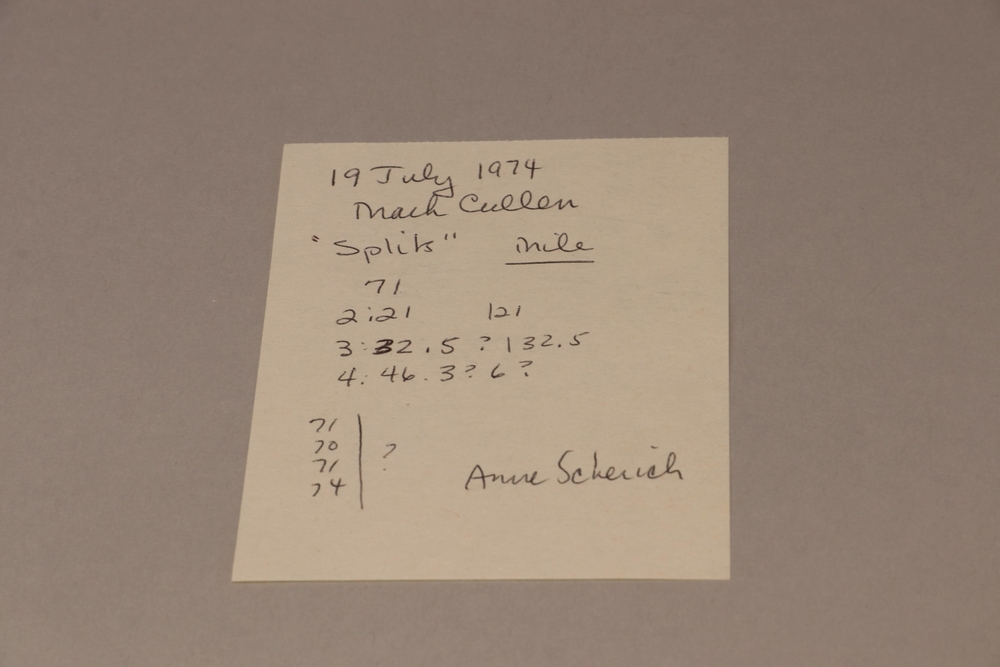 19 July 1974
Mach Cullen
"Splits" mile
71
2:21 121
3:32.5 ? 132.5
4:46.3? 6?
71
70 ?
71
74
Anne Scherich